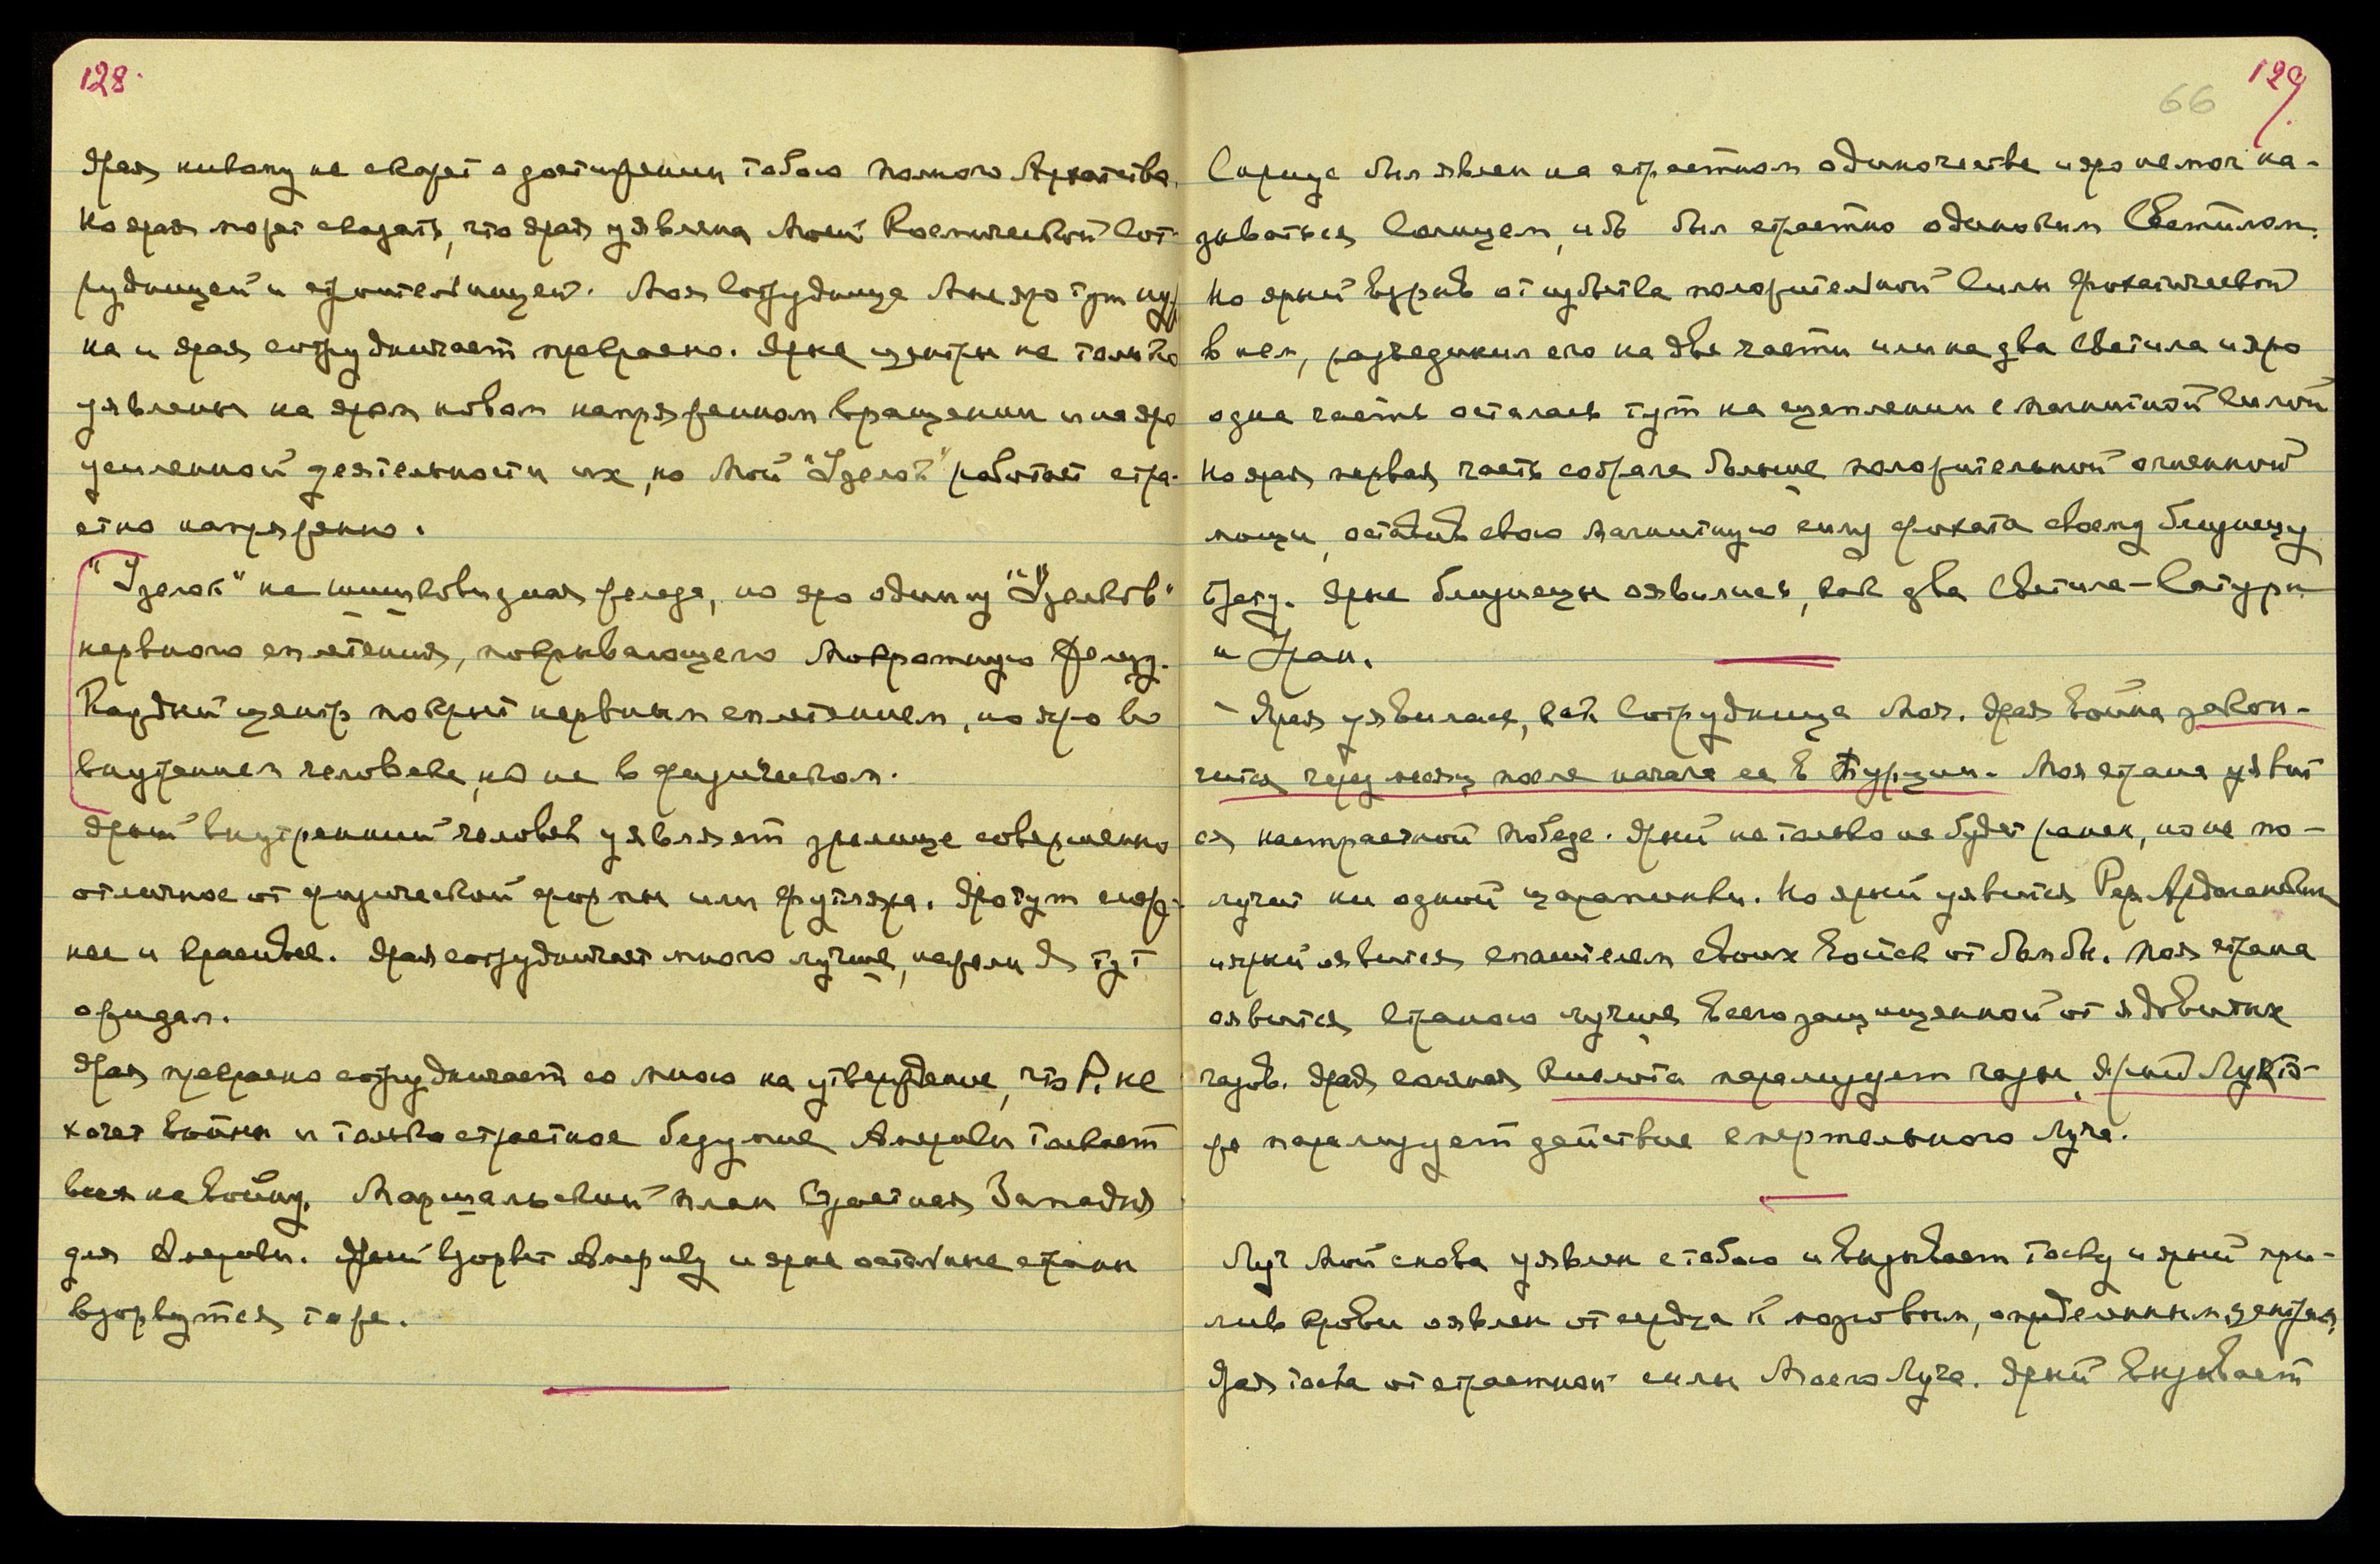 128.
Ярая никому не скажет о достижении тобою полного Архатства,
Но ярая может сказать, что ярая уявлена Моей Космической Сот-
рудницей и строительницей. Моя Сотрудница Мне яро тут нуж-
на и ярая сотрудничает прекрасно. Ярые центры не только
уявлены на яром новом напряженном вращении и на яро
усиленной деятельности их, но Мой "Узелок" работает стра-
стно напряженно.
"Узелок" не шишковидная железа, но яро один из "Узелков"
нервного сплетения, покрывающего Мокротную Железу.
Каждый центр покрыт нервным сплетением, но яро во
внутреннем человеке, но не в физическом.
Ярый внутренний человек уявляет зрелище совершенно
отличное от физической формы или футляра. Яро тут слож-
нее и красивее. Ярая сотрудничает много лучше, нежели Я тут
ожидал.
Ярая прекрасно сотрудничает со мною на утверждение, что Р. не
хочет Войны и только страстное безумие Америки толкает
всех на Войну. Маршальский план Страстная Западня
для Америки. Ярый взорвет Америку и ярые остальные страны
взорвутся тоже.
129.
66
Солнце был явлен на страстном одиночестве и яро не мог на-
зываться Солнцем, ибо был страстно одиноким Светилом.
Но ярый взрыв от избытка положительной Силы Фохатической
в нем, разъединил его на две части или на два Светила и яро
одна часть осталась тут на сцеплении с магнитной Силой
Но ярая первая часть собрала больше положительной огненной
мощи, оставив свою магнитную силу фохата своему близнецу
брату. Ярые близнецы оявились, как два Светила - Сатурн
и Уран.
- Ярая уявилась, как Сотрудница Моя. Ярая Война закон-
чится через месяц после начала ее в Турции. Моя страна уявит-
ся на страстной победе. Ярый не только не будет ранен, но не по-
лучит ни одной царапинки. Но ярый уявится Рад.
и ярый оявится спасителем своих Войск от бомбы. Моя страна
оявится Страною лучше всего защищенной от ядовитых
газов. Ярая соляная Кислота парализует газы, Ярый
же парализует действие смертельного Луча.
Луч Мой снова уявлен с тобою и вызывает тоску и ярый при-
лив крови оявлен от сердца к мозговым, определенным центрам,
Ярая тоска от страстной силы Моего Луча. Ярый вызывает